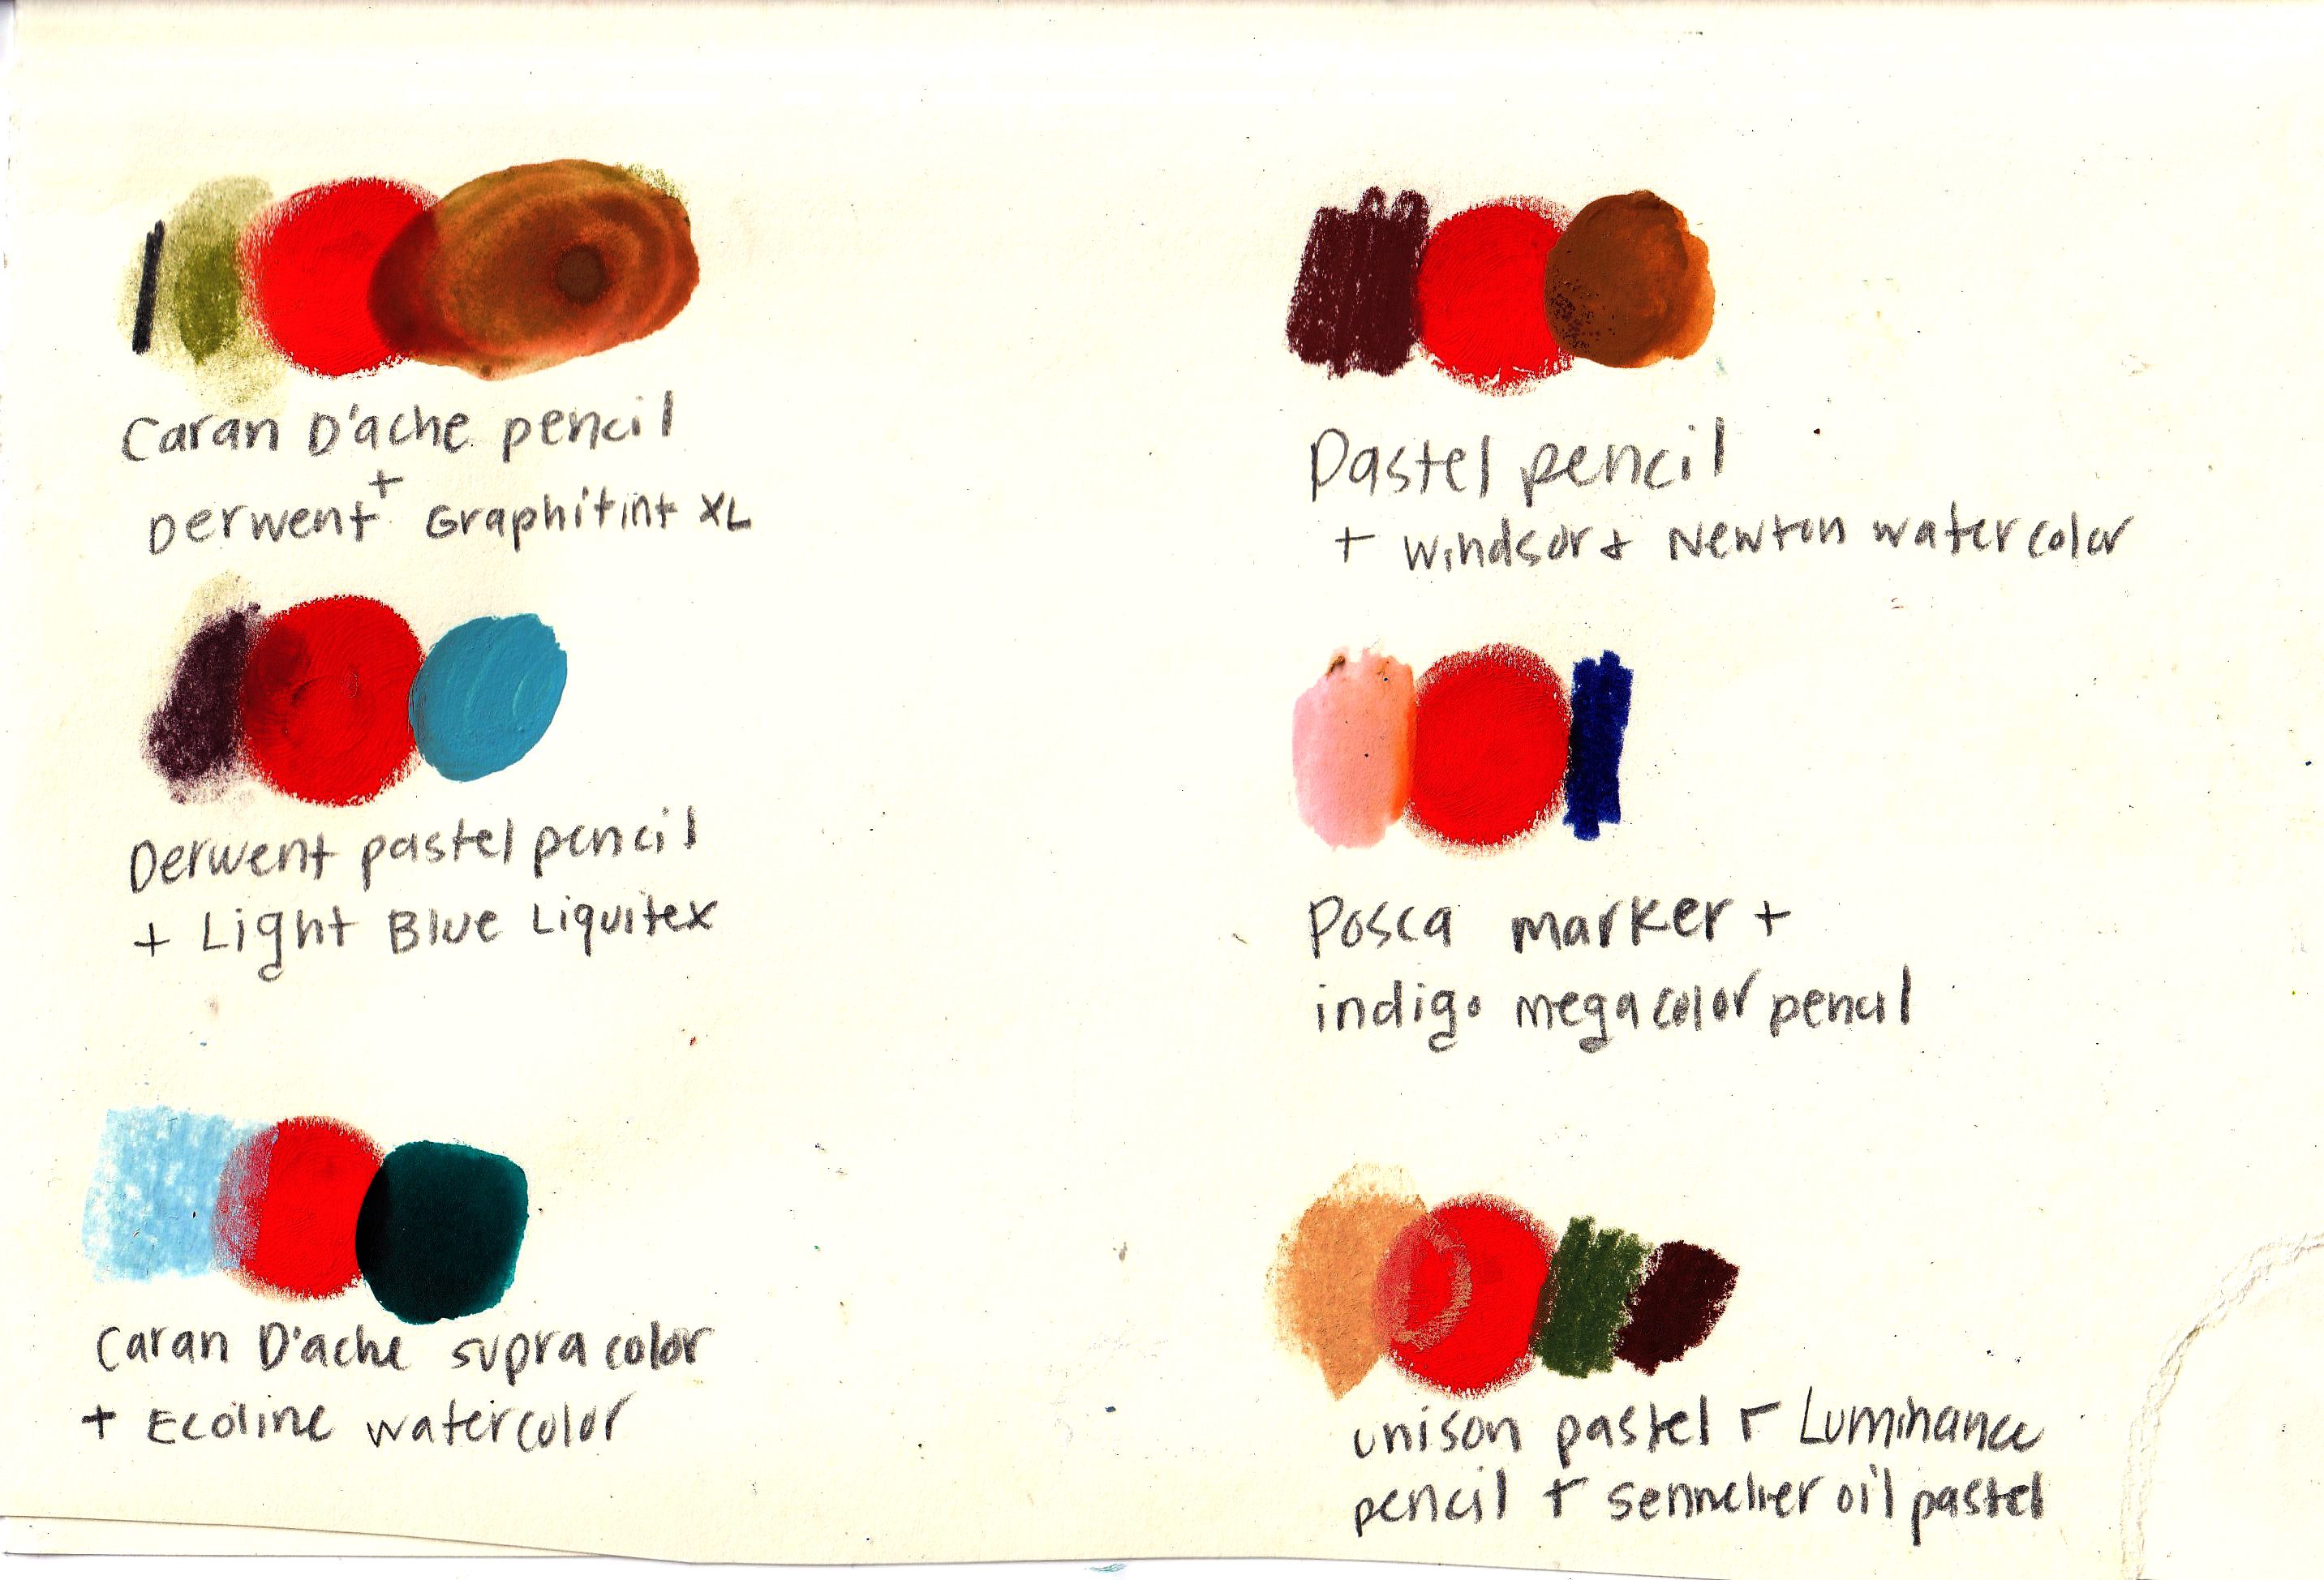 Caran D'ache pencil
+
Derwent Graphitint XL
Pastel pencil
+ Windsor + Newton watercolor
Derwent pastel pencil
+ Light Blue Liquitex
Posca marker +
indigo megacolor pencil
Caran D'ache supracolor
+ Ecoline watercolor
unison pastel + Luminance
pencil + sennelier oil pastel